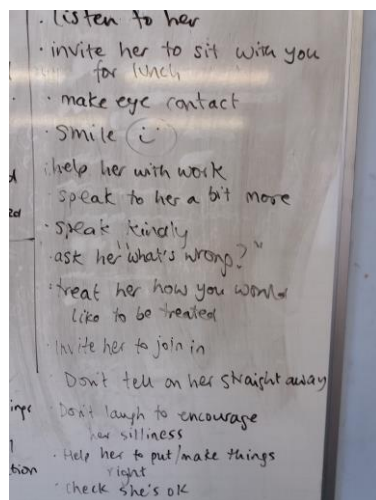 · listen to her
· invite her to sit with you
for lunch
· make eye contact
· smile
· help her with work
· speak to her a bit more
· speak kindly
· ask her "what's wrong?"
· treat her how you would
like to be treated
· Invite her to join in
· Don't tell on her straight away
· Don't laugh to encourage
her silliness
· Help her to put/make things
right
· check she's ok